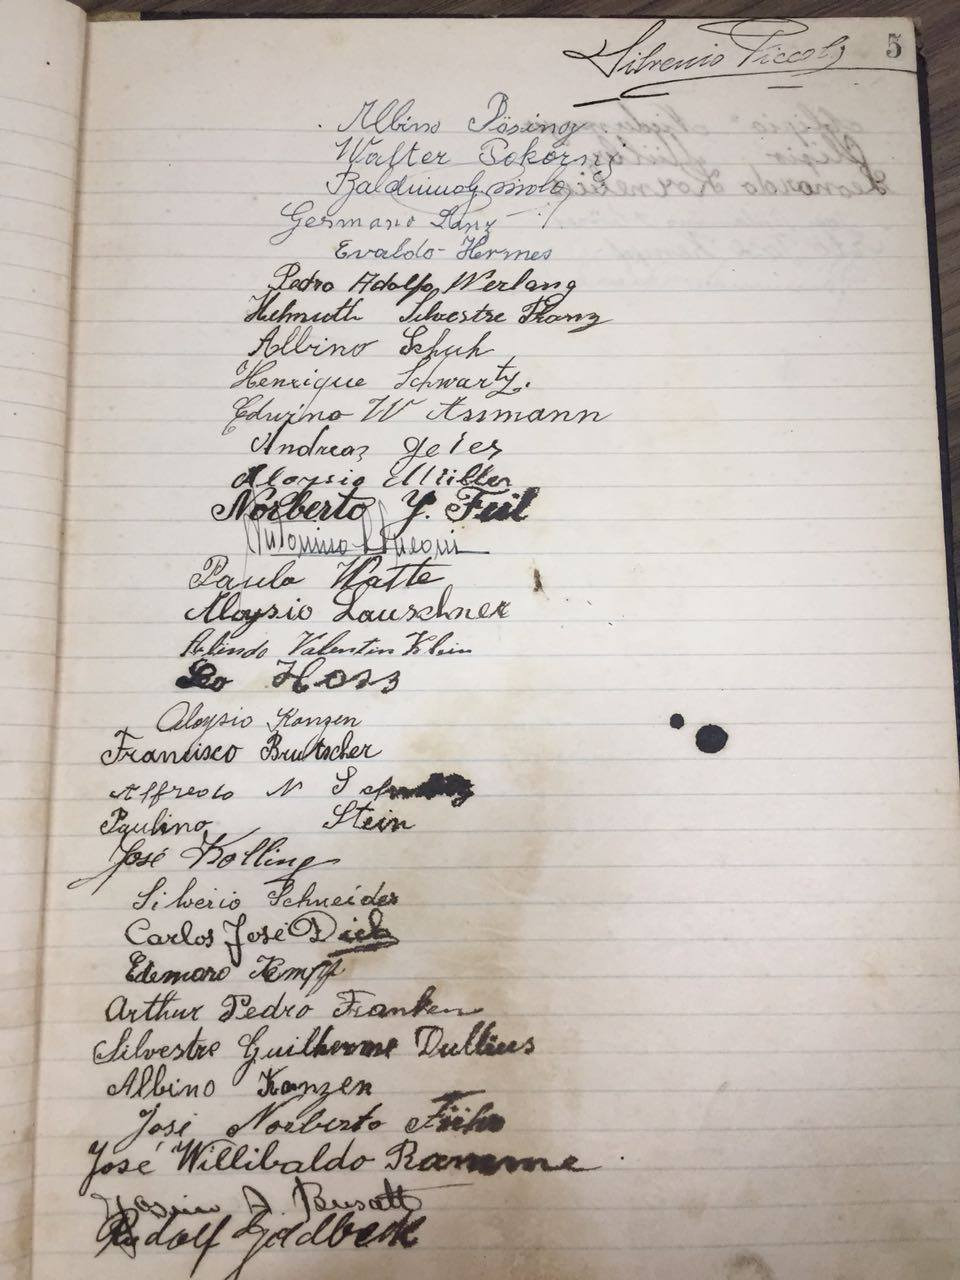 Silvenio Piccoly 5
Albino Pösing
Walter Pokorny
Germano Lanz
Evaldo Hermes
Pedro Adolfo Werlang
Helmuth Silvestre Franz
Albino Schuh
Henrique Schwartz.
Edvino W Assmann
Andreas Geier
Aloysio Müller
Norberto Y. Feil
Antonino
Paulo Hatte
Aloysio Lauschner
Arlindo Valentin Klein
Leo Hoss
Aloysio Kanzen
Francisco Brutscher
Alfredo N
Paulino Stein
José Kolling
Silverio Schneider
Carlos José Dick
Edemaro Kempf
Arthur Pedro Franken
Silvestre Guilherme Dullius
Albino Kanzen
José Norberto Führ
José Willibaldo Ramme
A. Busatt
Rudolf Goldbeck